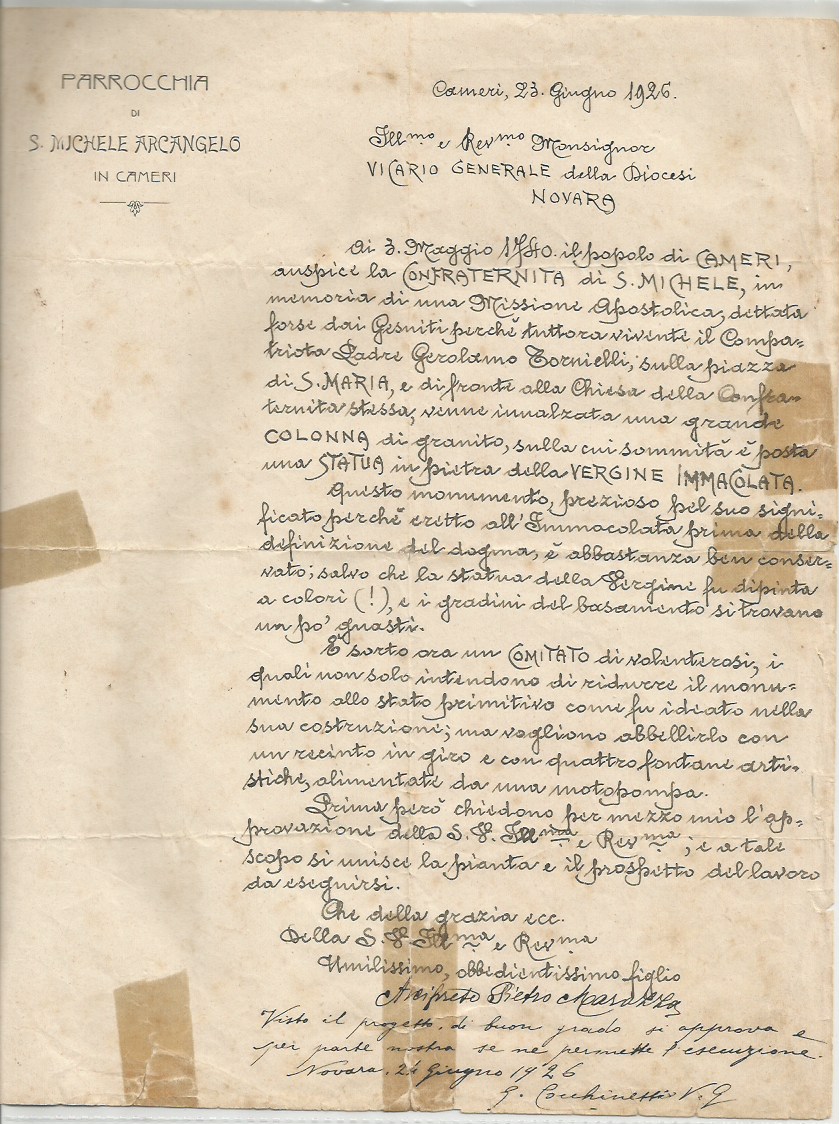 PARROCCHIA
DI
S. MICHELE ARCANGELO
IN CAMERI
Cameri, 23. Giugno 1926.
Ill.mo e Rev.mo Monsignor
VICARIO GENERALE della Diocesi
NOVARA
Ai 3. Maggio 1740. il popolo di CAMERI,
auspice la CONFRATERNITA di S. MICHELE, in
memoria di una Missione Apostolica, dettata
forse dai Gesuiti perchè tuttora vivente il Compa=
triota Padre Gerolamo Tornielli, sulla piazza
di S. MARIA, e di fronte alla Chiesa della Confra=
ternita stessa, venne innalzata una grande
COLONNA di granito, sulla cui sommità è posta
una STATUA in pietra della VERGINE IMMACOLATA.
Questo monumento, prezioso pel suo signi=
ficato perchè eretto all'Immacolata prima della
definizione del dogma, è abbastanza ben conser=
vato; salvo che la statua della Vergine fu dipinta
a colori (!), e i gradini del basamento si trovano
un po' guasti.
È sorto ora un COMITATO di volenterosi, i
quali non solo intendono di ridurre il monu=
mento allo stato primitivo come fu ideato nella
sua costruzione; ma vogliono abbellirlo con
un recinto in giro e con quattro fontane arti=
stiche, alimentate da una motopompa.
Prima però chiedono per mezzo mio l'ap=
provazione della S. V. Ill.ma e Rev.ma; e a tale
scopo si unisce la pianta e il prospetto del lavoro
da eseguirsi.
Che della grazia ecc.
Della S. V. Ill.ma e Rev.ma
Umilissimo, obbedientissimo figlio
Pietro
Visto il progetto, di buon grado si approva e
per parte nostra se ne permette l'esecuzione.
Novara. 24 Giugno 1926
G. V. G